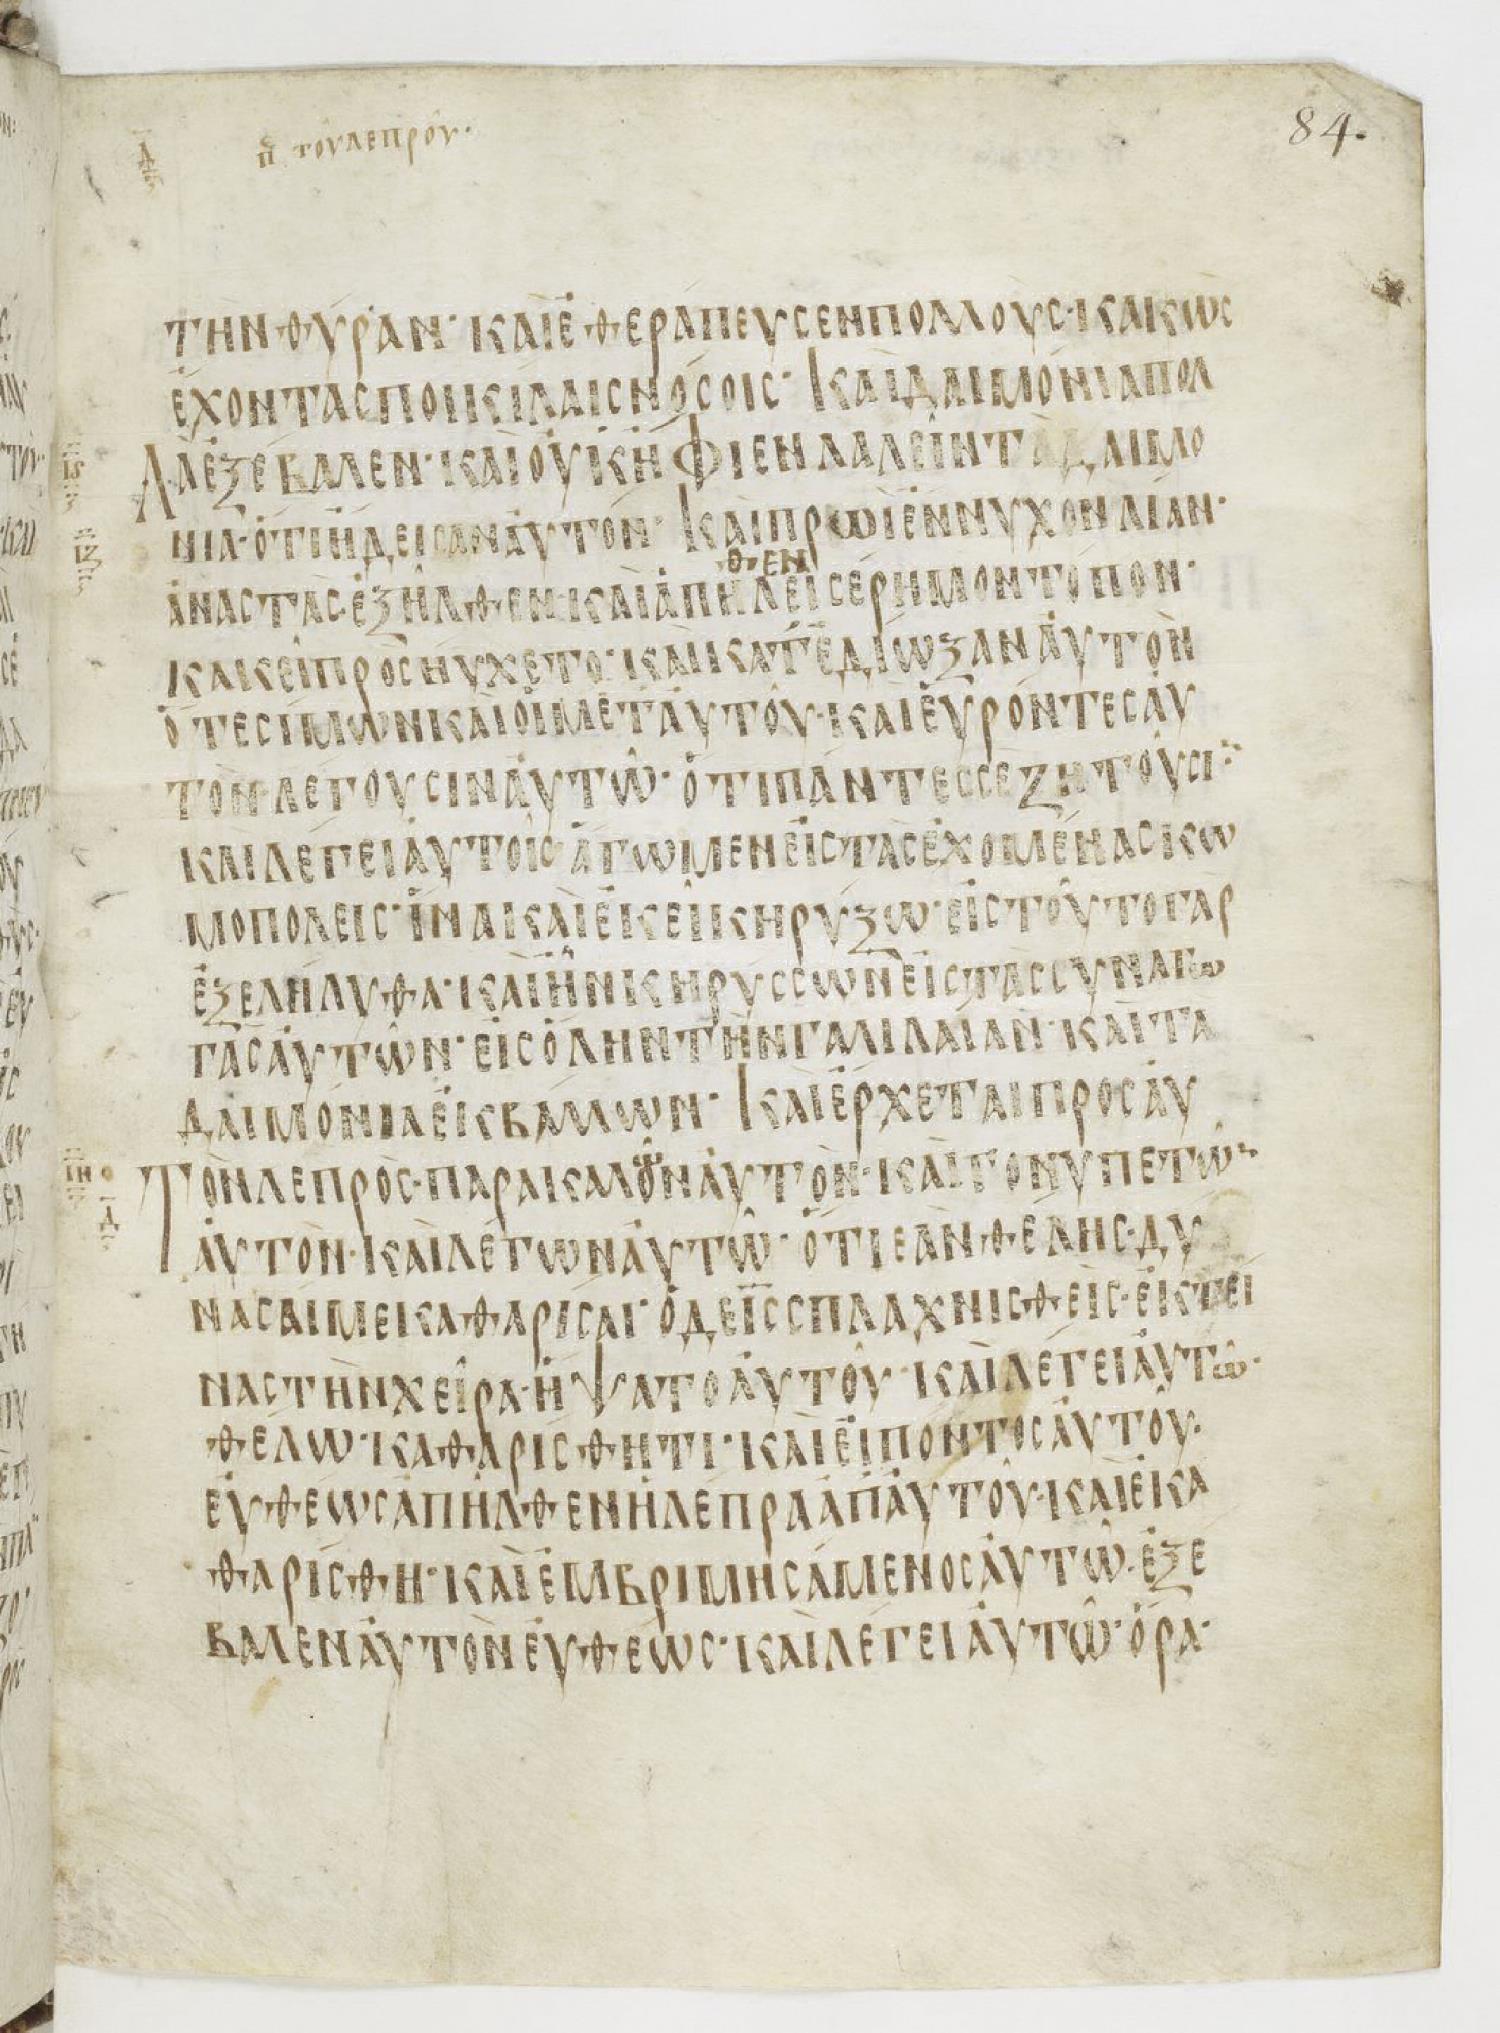 Δ
π̅ε τοῦ λεπροῦ·
84.
ΤῊΝ ΘΎΡΑΝ· ΚΑῚ ἘΘΕΡΆΠΕΥΣΕΝ ΠΟΛΛΟΥΣ· ΚΑΚΩΣ
ἜΧΟΝΤΑΣ ΠΟΙΚΊΛΑΙΣ ΝΌΣΟΙΣ· ΚΑῚ ΔΑΙΜΌΝΙΑ ΠΟΛ
ΛᾺ ἘΞΕΒΑΛΕΝ· ΚΑῚ ΟΥ̓Κ ἨΦΙΕΝ ΛΑΛΕΙ͂Ν ΤᾺ ΔΑΙΜΟ
ΝΙΑ· ὍΤΙ ἬΔΕΙΣΑΝ ἈΥΤΌΝ· ΚΑῚ ΠΡΩΙ ἜΝΝΥΧΟΝ ΛΊΑΝ·
ἈΝΑΣΤΆΣ· ἘΞΗ͂ΛΘΕΝ· ΚΑῚ ἈΠΗ͂ΛΘΕΝ ΕΙΣ ΈΡΗΜΟΝ ΤΌΠΟΝ·
ΚΑΚΕΙ͂ ΠΡΟΣΗΥΧΕΤΟ· ΚΑῚ ΚΑΤΕΔΊΩΞΑΝ ἈΥΤῸΝ
Ὅ ΤΕ ΣΊΜΩΝ ΚΑῚ ὉΙ ΜΕΤ ἈΥΤΟΥ͂· ΚΑῚ ἙΥΡΌΝΤΕΣ ἈΥ
ΤῸΝ· ΛΈΓΟΥΣΙΝ ἈΥΤΩ͂· ὍΤΙ ΠΆΝΤΕΣ ΣΕ ΖΗΤΟΥ͂ΣΙ·
ΚΑῚ ΛΕΓΕΙ ἈΥΤΟΙ͂Σ ἌΓΩΜΕΝ ἘΙΣ ΤᾺΣ ἘΧΟΜΈΝΑΣ ΚΩ
ΜΟΠΟΛΕΙΣ· ἽΝΑ ΚΑῚ ἘΚΕΙ͂ ΚΗΡΎΞΩ· ἘΙΣ ΤΟΥ͂ΤΟ ΓΑΡ
ἘΞΕΛΉΛΥΘΑ· ΚΑῚ ἮΝ ΚΗΡΎΣΣΩΝ ἘΙΣ ΤᾺΣ ΣΥΝΑΓΩ
ΓᾺΣ ἈΥΤΩ͂Ν· ΕΙΣ ὍΛΗΝ ΤῊΝ ΓΑΛΙΛΑΊΑΝ· ΚΑῚ ΤΑ
ΔΑΙΜΌΝΙΑ ἘΚΒΆΛΛΩΝ· ΚΑῚ ἜΡΧΕΤΑΙ ΠΡΟΣ ἈΥ
ΤῸΝ ΛΕΠΡΌΣ· ΠΑΡΑΚΑΛΩ͂Ν ἈΥΤῸΝ· ΚΑῚ ΓΟΝΥΠΕΤΩ͂Ν
ἈΥΤῸΝ· ΚΑῚ ΛΈΓΩΝ ἈΥΤΩ͂· ὍΤΙ ΕᾺΝ ΘΕΛΗΣ· ΔΥ
ΝΑΣΑΙ ΜΕ ΚΑΘΑΡΊΣΑΙ· Ὁ ΔΕ Ι̅Σ̅ ΣΠΛΑΧΝΙΣΘΕῚΣ· ἘΚΤΕΙ
ΝΑΣ ΤῊΝ ΧΕΙ͂ΡΑ· ἭΨΑΤΟ ἈΥΤΟΥ͂· ΚΑῚ ΛΈΓΕΙ ἈΥΤΩ͂·
ΘΕΛΩ· ΚΑΘΑΡΙΣΘΗΤΙ· ΚΑῚ ἘΙΠΌΝΤΟΣ ἈΥΤΟΥ·
ἘΥΘΕΩΣ ἈΠΗ͂ΛΘΕΝ Ἡ ΛΕΠΡΑ ἈΠ ἈΥΤΟΥ͂· ΚΑῚ ἘΚΑ
ΘΑΡΊΣΘΗ· ΚΑῚ ἘΜΒΡΙΜΗΣΆΜΕΝΟΣ ἈΥΤΩ͂· ἘΞΕ
ΒΑΛΕΝ ἈΥΤῸΝ ἘΥΘΕΩΣ· ΚΑῚ ΛΕΓΕΙ ἈΥΤΩ͂· ὍΡΑ·
ΙϚ
ΙΖ
ΙΗ
Δ